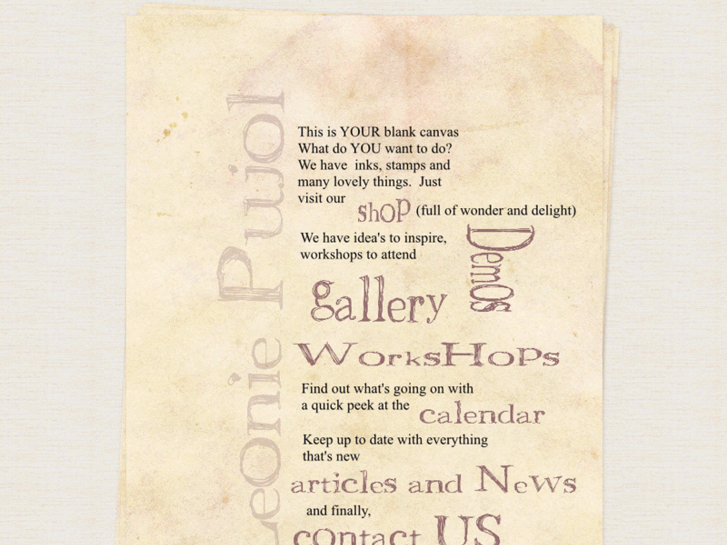 Leonie Pujol
This is YOUR blank canvas
What do YOU want to do?
We have inks, stamps and
many lovely things. Just
visit our
shop (full of wonder and delight)
We have idea's to inspire,
workshops to attend
Demos
gallery
WorksHops
Find out what's going on with
a quick peek at the
calendar
Keep up to date with everything
that's new
articles and News
and finally,
contact US